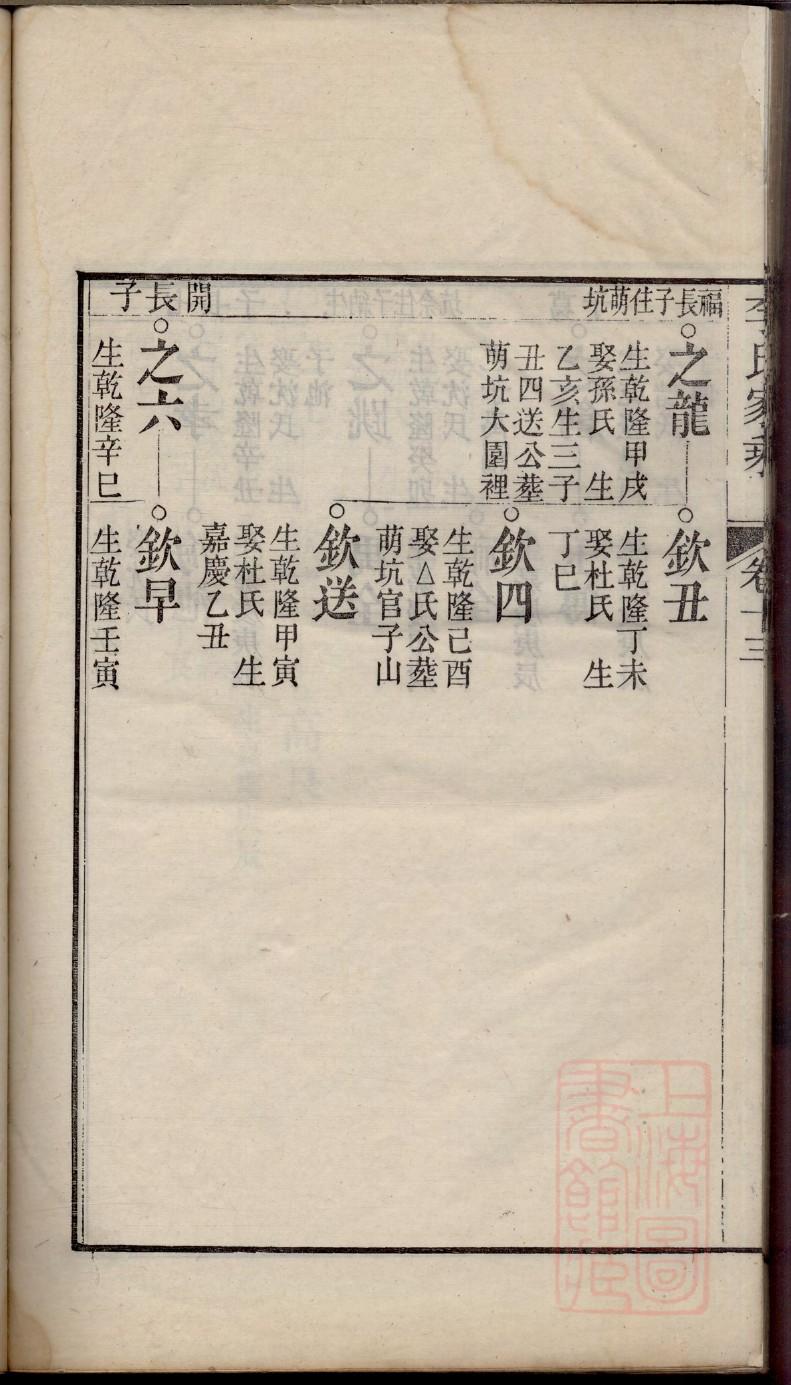 李氏家乘
卷十三
福長子住萌坑
之龍
生乾隆甲戌
娶孫氏　生
乙亥生三子
丑四送公塟
萌坑大園裡
欽丑
生乾隆丁未
娶杜氏　生
丁巳
欽四
生乾隆己酉
娶△氏公塟
萌坑官子山
欽送
生乾隆甲寅
娶杜氏　生
嘉慶乙丑
開長子
之六
生乾隆辛巳
欽早
生乾隆壬寅
上海圖書館藏